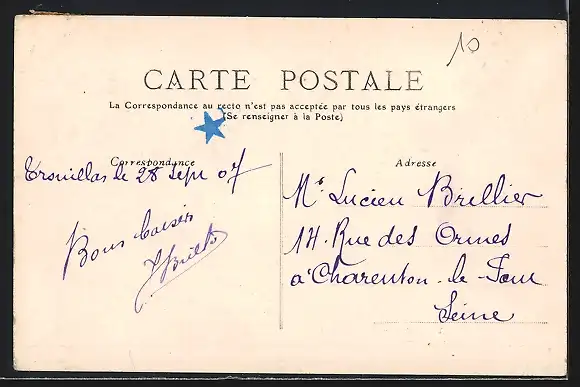 10
CARTE POSTALE
La Correspondance au recto n'est pas acceptée par tous les pays étrangers
(Se renseigner à la Poste)
Correspondance
Adresse
Trouillas le 28 Sept 07
Bons baisers
Mr Lucien Brellier
14 Rue des Ormes
a Charenton-le-Pont
Seine